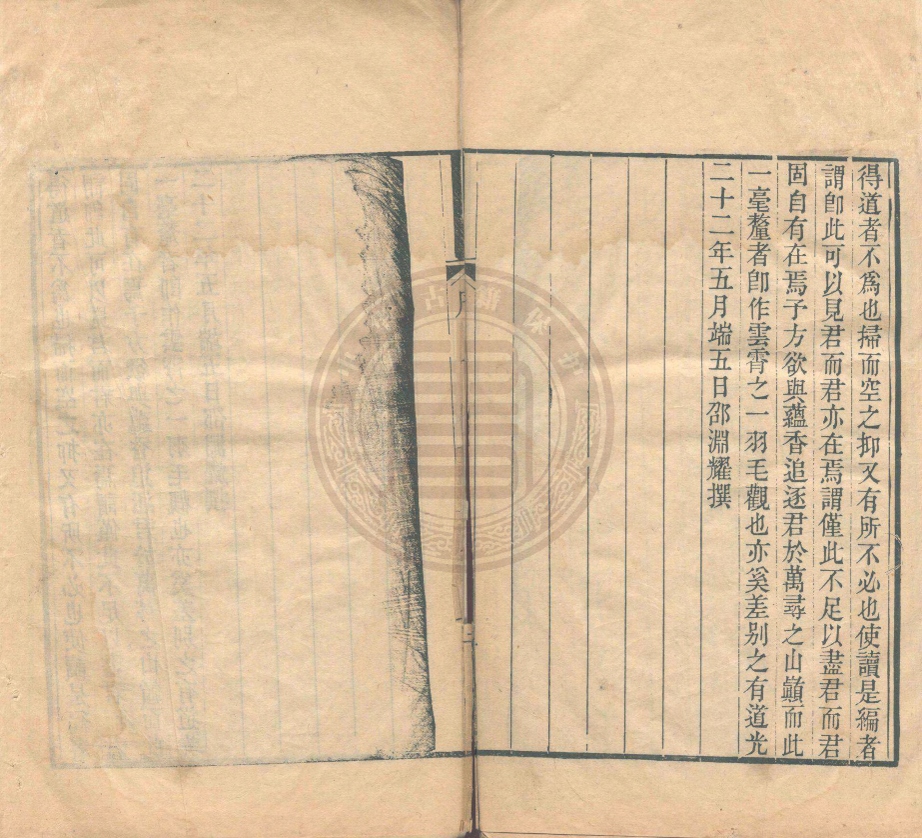 得道者不爲也掃而空之抑又有所不必也使讀是編者
謂卽此可以見君而君亦在焉謂僅此不足以盡君而君
固自有在焉予方欲與蘊香追逐君於萬尋之山巔而此
一毫釐者卽作雲霄之一羽毛觀也亦奚差別之有道光
二十二年五月端五日邵淵耀撰